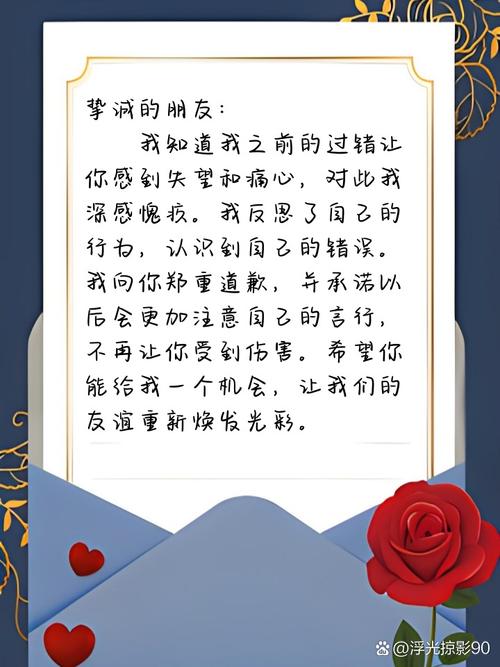 挚诚的朋友：
我知道我之前的过错让
你感到失望和痛心，对此我
深感愧疚。我反思了自己的
行为，认识到自己的错误。
我向你郑重道歉，并承诺以
后会更加注意自己的言行，
不再让你受到伤害。希望你
能给我一个机会，让我们的
友谊重新焕发光彩。
浮光掠影90